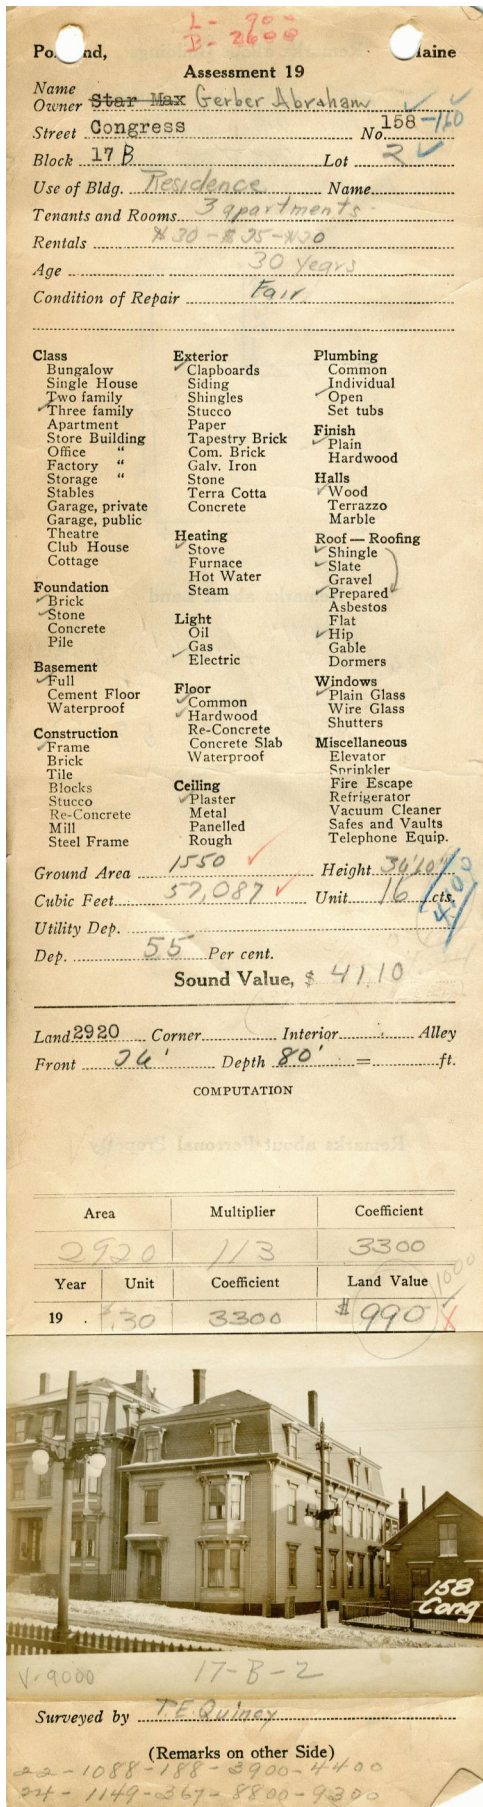 L - 900
B - 2600
Portland, Maine
Assessment 19
Name
Owner Star Max Gerber Abraham
Street Congress No. 158-160
Block 17 B Lot 2
Use of Bldg. Residence Name
Tenants and Rooms 3 apartments
Rentals $30-$25-$20
Age 30 years
Condition of Repair Fair
Class
Bungalow
Single House
Two family
Three family
Apartment
Store Building
Office "
Factory "
Storage "
Stables
Garage, private
Garage, public
Theatre
Club House
Cottage
Foundation
Brick
Stone
Concrete
Pile
Basement
Full
Cement Floor
Waterproof
Construction
Frame
Brick
Tile
Blocks
Stucco
Re-Concrete
Mill
Steel Frame
Exterior
Clapboards
Siding
Shingles
Stucco
Paper
Tapestry Brick
Com. Brick
Galv. Iron
Stone
Terra Cotta
Concrete
Heating
Stove
Furnace
Hot Water
Steam
Light
Oil
Gas
Electric
Floor
Common
Hardwood
Re-Concrete
Concrete Slab
Waterproof
Ceiling
Plaster
Metal
Panelled
Rough
Plumbing
Common
Individual
Open
Set tubs
Finish
Plain
Hardwood
Halls
Wood
Terrazzo
Marble
Roof — Roofing
Shingle
Slate
Gravel
Prepared
Asbestos
Flat
Hip
Gable
Dormers
Windows
Plain Glass
Wire Glass
Shutters
Miscellaneous
Elevator
Sprinkler
Fire Escape
Refrigerator
Vacuum Cleaner
Safes and Vaults
Telephone Equip.
Ground Area 1550 Height 36'10"
Cubic Feet 57,087 Unit 16 cts.
4100
Utility Dep.
Dep. 55 Per cent.
Sound Value, $ 41.10
Land 2920 Corner Interior Alley
Front 36' Depth 80' = ft.
COMPUTATION
Area Multiplier Coefficient
2920 113 3300
Year Unit Coefficient Land Value
1000
19 . $.30 3300 $990
158
Cong
V-9000 17-B-2
Surveyed by T.E. Quincy
(Remarks on other Side)
22-1088-188-3900-4400
24-1149-367-8800-9300